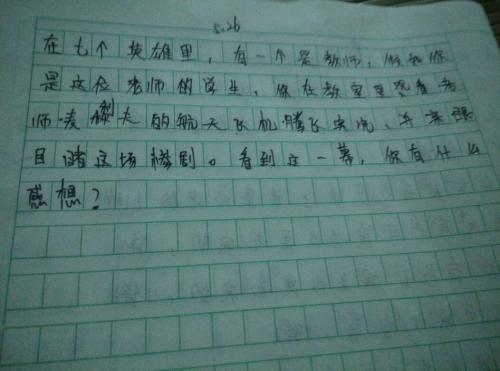 5.26
在七个英雄里,有一个是教师,假如你
是这位老师的学生,你在教室里观看老
师麦 夫的航天飞机腾飞实况,并亲眼
目睹这场惨剧。看到这一幕,你有什么
感想?